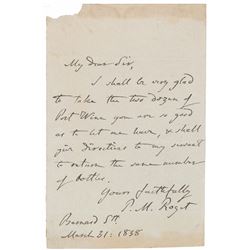 My Dear Sir,
I shall be very glad
to take the two dozen of
Port Wine you are so good
as to let me have, & shall
give directions to my servant
to return the same number
of bottles.
Yours faithfully
P. M. Roget
Bernard Stt
March 31: 1838